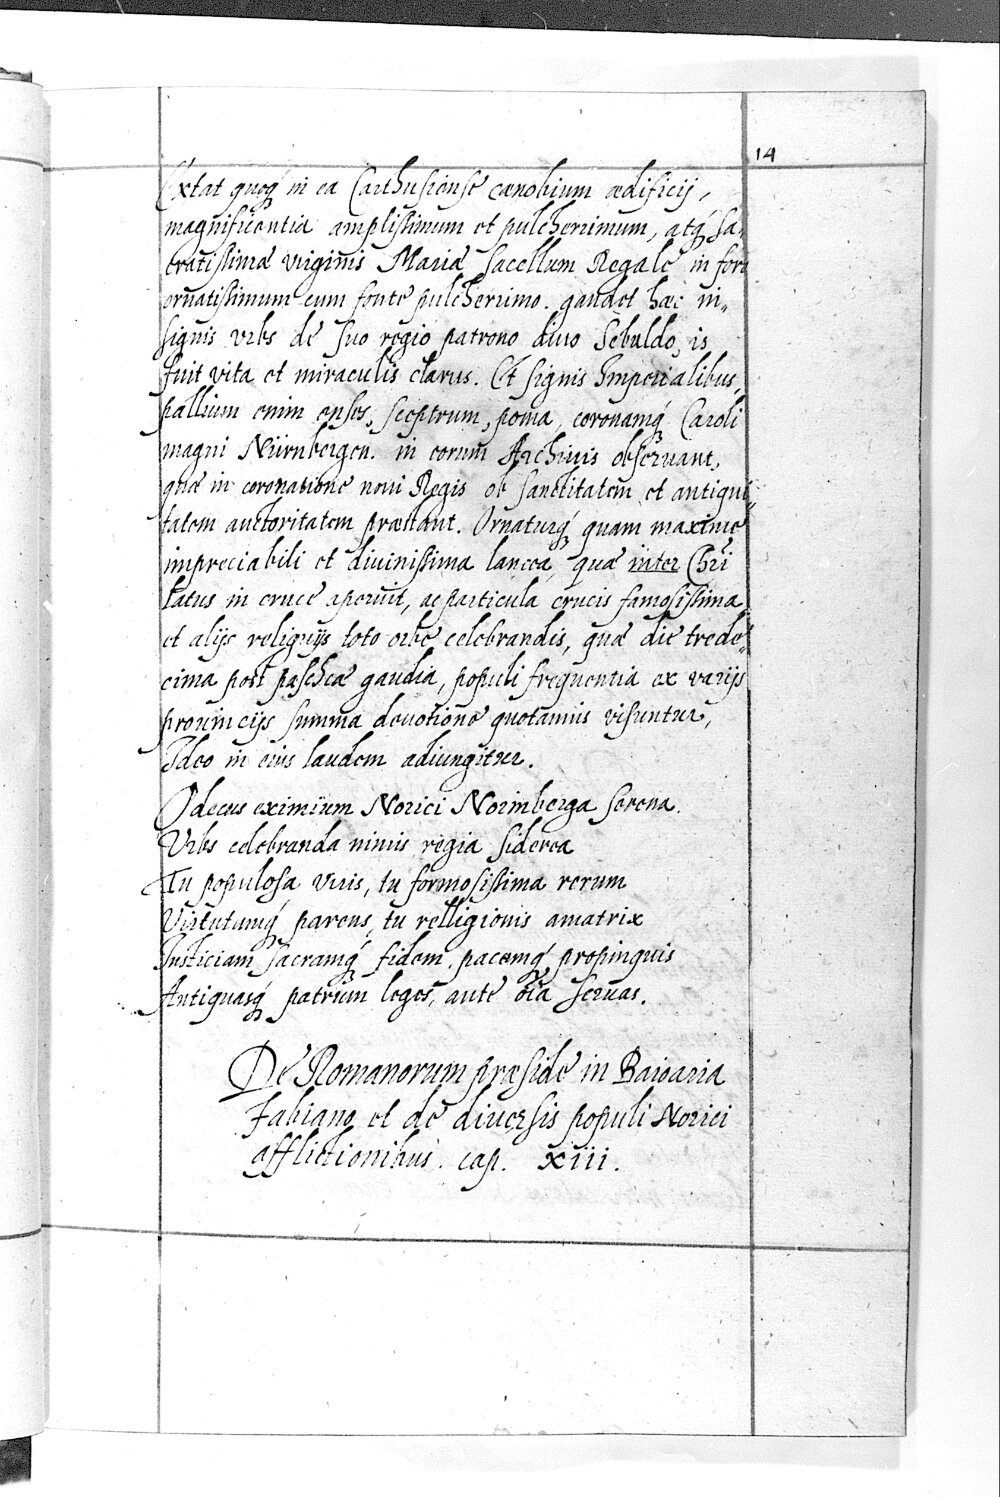 14
Extat quoq́ in ea Carthusiense cænobium ædificij,
magnificentia amplissimum et pulcherrimum, atq́ sa-
cratissimæ virginis Mariæ sacellum Regale in foro
ornatissimum cum fonte pulcherrimo. gaudet hæc in-
signis vrbs de suo regio patrono diuo Sebaldo, is
fuit vita et miraculis clarus. Et signis Imperialibus,
pallium enim enses, sceptrum, poma, coronamq́ Caroli
magni Nürnbergen. in eorum Archiuis obseruant,
quæ in coronatione noui Regis ob sanctitatem et antiqui-
tatem auctoritatem præstant. Ornaturq́ quam maxime
impreciabili et diuinissima lancea, quæ inter Chri
latus in cruce aperuit, ac particula crucis famosissima,
et alijs reliquijs toto orbe celebrandis, quæ die trede-
cima post paschæ gaudia, populi frequentia ex varijs
prouincijs summa deuotione quotannis visuntur,
Ideo in eius laudem adiungitur.
O decus eximium Norici Norimberga serena.
Vrbs celebranda nimis regia siderea
Tu populosa viris, tu formosissima rerum
Virtutumq́ parens, tu relligionis amatrix
Iusticiam sacramq́ fidem, pacemq́ propinquis
Antiquasq́ patrum leges, ante oĩa seruas.
De Romanorum præside in Baioaria
Fabiano et de diuersis populi Norici
afflictionibus. cap. XIII.